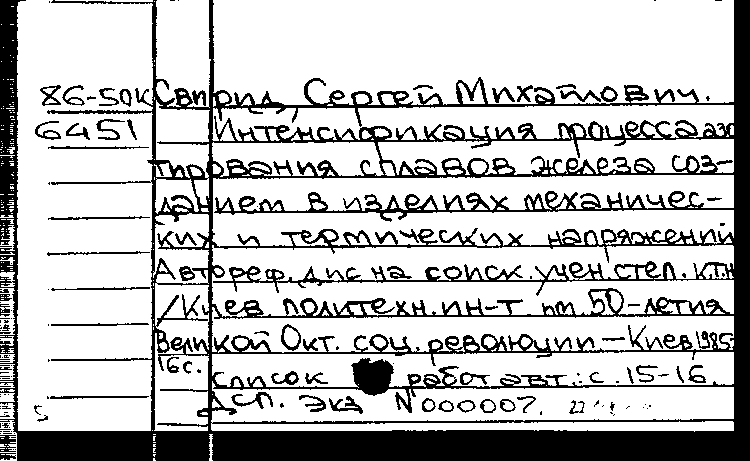 86-50К Свирид, Сергей Михайлович.
6451 Интенсификация процесса азо
тирования сплавов железа соз-
данием в изделиях механичес-
ких и термических напряжений
Автореф. дис на соиск. учен. степ. к.т.н
/Киев. политехн. ин-т им. 50-летия
Великой Окт. соц. революции. - Киев, 1985-
16 с.
список работ авт.: с. 15-16.
ДСП. Экз N000007.
5